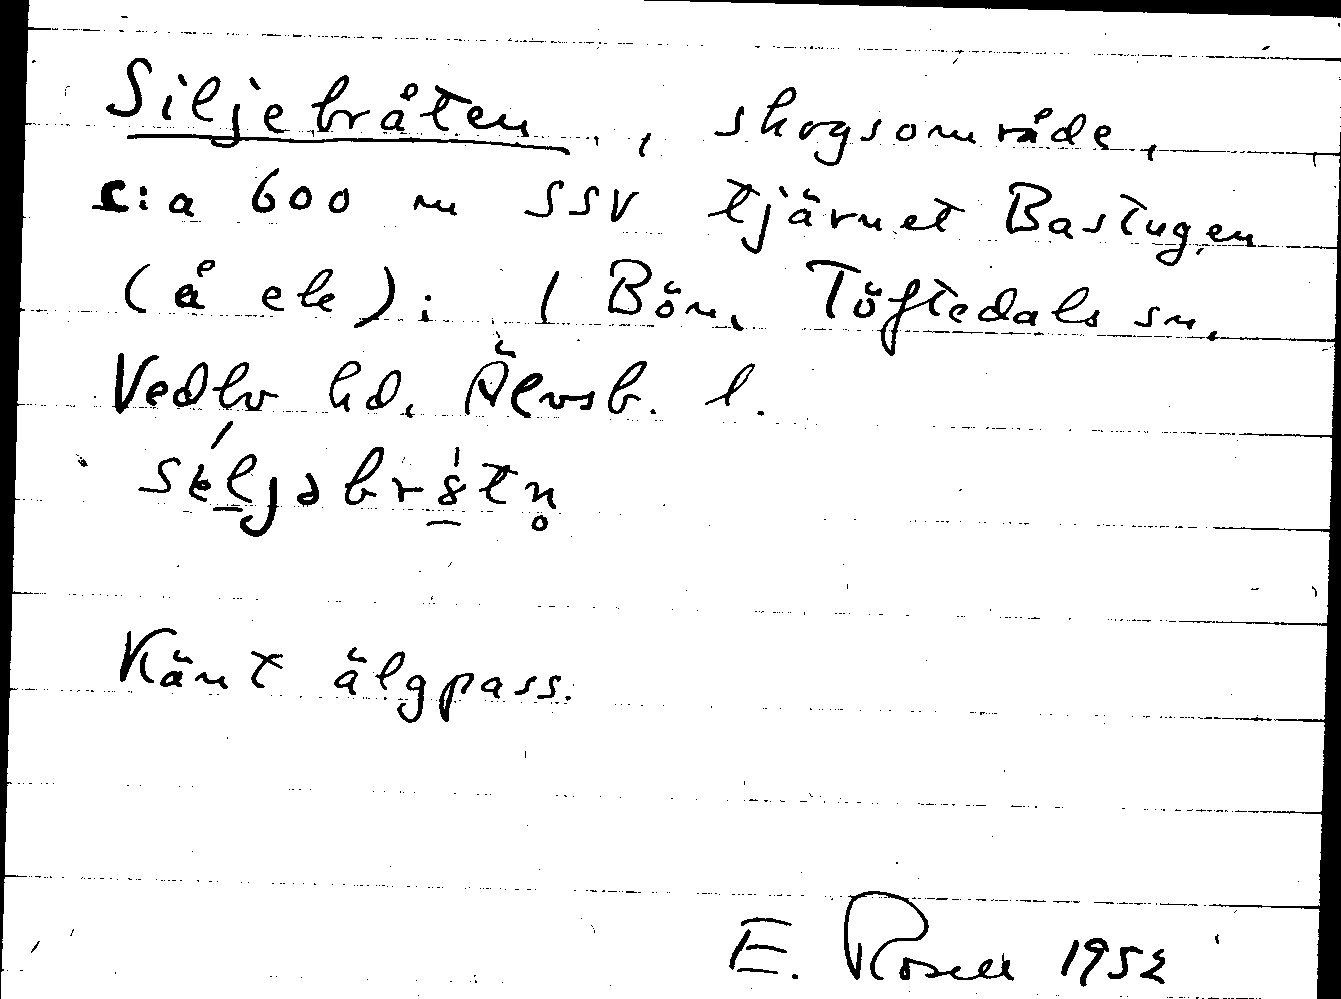 Siljebråten, skogsområde,
c:a 600 m SSV tjärnet Bastugen
(å ek); ( Bön, Töftedals sn.
Vedbo hd. Älvsb. l.
Känt älgpass.
E. Rosell 1952